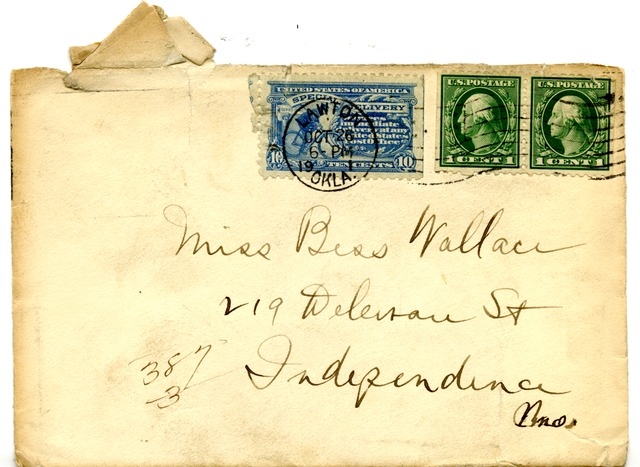 UNITED STATES OF AMERICA
SPECIAL DELIVERY
immediate
Delivery at any
United States
Post Office
10 TEN CENTS 10
LAWTON
OCT 26
6 PM
19
OKLA.
U.S. POSTAGE
1 CENT 1
U.S. POSTAGE
1 CENT 1
Miss Bess Wallace
219 Delewau St
Independence
Mo.
387
3